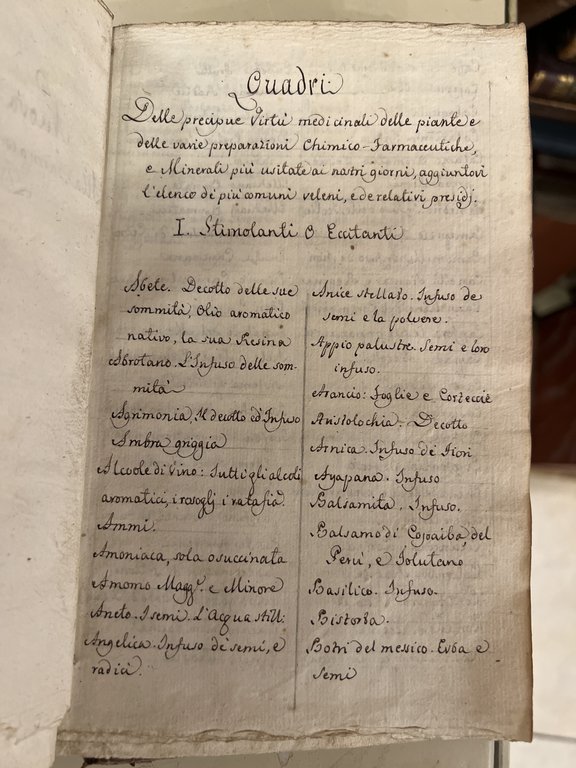 Quadri
Delle precipue Virtù medicinali delle piante e
delle varie preparazioni Chimico-Farmaceutiche,
e Minerali più usitate ai nostri giorni, aggiuntovi
l'elenco de' più comuni veleni, e de relativi presidj.
I. Stimolanti o Eccitanti
Abete. Decotto delle sue
sommità, Olio aromatico
nativo, la sua Resina
Abrotano. L'Infuso delle som-
mità
Agrimonia, Il decotto ed Infuso
Ambra griggia
Alcoole di Vino: Tutti gli alcoli
aromatici, i rosoglj i ratafià.
Ammi.
Amoniaca, sola o succinata
Amomo Magg.e e Minore
Aneto. I semi. L'Acqua still:
Angelica. Infuso de' semi, e
radici.
Anice stellato. Infuso de
semi e la polvere.
Appio palustre. Semi e loro
infuso.
Arancio: Foglie e Corteccie
Aristolochia. Decotto
Arnica. Infuso de' Fiori
Ayapana. Infuso
Balsamita. Infuso.
Balsamo di Copaiba, del
Perù, e Tolutano
Basilico. Infuso.
Bistorta.
Botri del messico. Erba e
semi